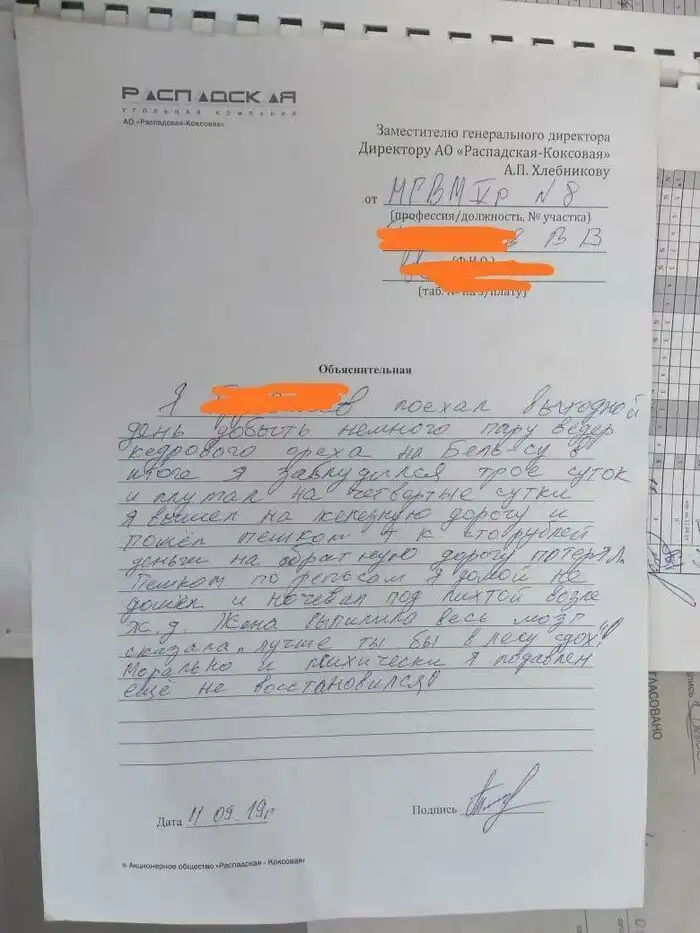 РАСПАДСКАЯ
УГОЛЬНАЯ КОМПАНИЯ
АО «Распадская-Коксовая»
Заместителю генерального директора
Директору АО «Распадская-Коксовая»
А.П. Хлебникову
от МГВМ Vр N 8
(профессия/должность, № участка)
В В
(Ф.И.О.)
(таб. № на з/плату)
Объяснительная
Я поехал выходной
день добыть немного пару ведер
кедрового ореха на Бель-су в
итоге я заблудился трое суток
и плутал на четвертые сутки
я вышел на железную дорогу и
пошёл пешком т к сто рублей
деньги на обратную дорогу потерял.
Пешком по рельсам я домой не
дошёл и ночевал под пихтой возле
ж.д. Жена выпилила весь мозг
сказала „лучше ты бы в лесу сдох"!
Морально и психически я подавлен
ещё не восстановился!
Дата 11 09 19г
Подпись
© Акционерное общество «Распадская - Коксовая»
СОГЛАСОВАНО